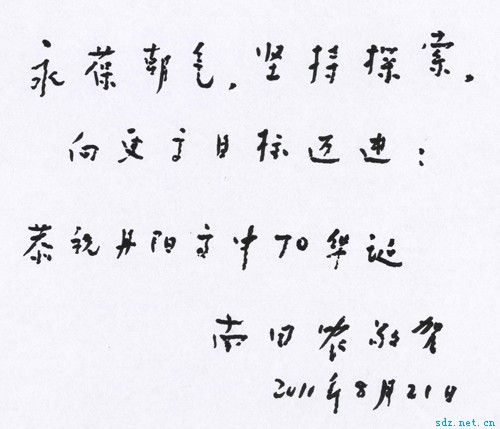 永葆朝气，坚持探索，
向更高目标迈进：
恭祝丹阳高中70华诞
南日农敬贺
2011年8月21日
sdz.net.cn